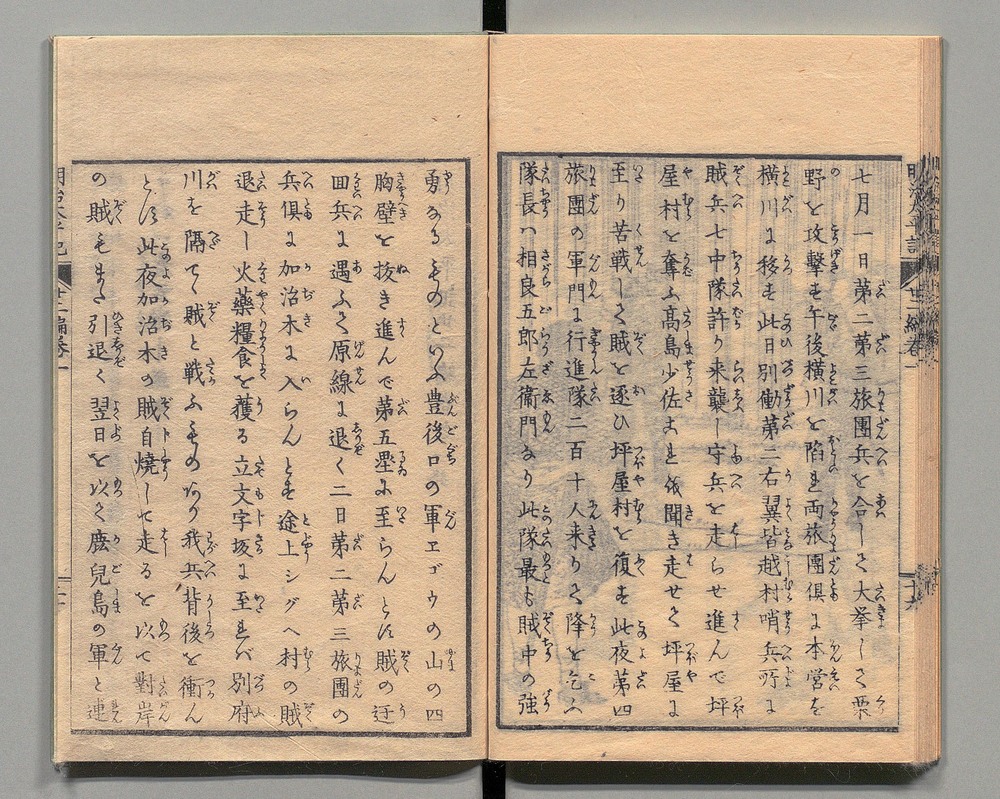 七月一日第二第三旅團兵を合して大挙して栗
野を攻撃す午後横川を陥れ両旅團倶に本営を
横川に移す此日別働第二右翼皆越村哨兵所に
賊兵七中隊許り来襲し守兵を走らせ進んで坪
屋村を奪ふ高島少佐これを聞き走せて坪屋に
至り苦戦して賊を逐ひ坪屋村を復す此夜第四
旅團の軍門に行進隊二百十人来りて降を乞ふ
隊長ハ相良五郎左衛門なり此隊最も賊中の強
勇なるものといふ豊後口の軍エゴウの山の四
胸壁を抜き進んで第五塁に至らんとす賊の迂
回兵に遇ふて原線に退く二日第二第三旅團の
兵倶に加治木に入らんとす途上シグヘ村の賊
退走し火藥糧食を獲る立文字坂に至れバ別府
川を隔て賊と戦ふものあり我兵背後を衝ん
とす此夜加治木の賊自焼して走るを以て對岸
の賊もまた引退く翌日を以て鹿兒島の軍と連
明治太平記 廿二編巻一